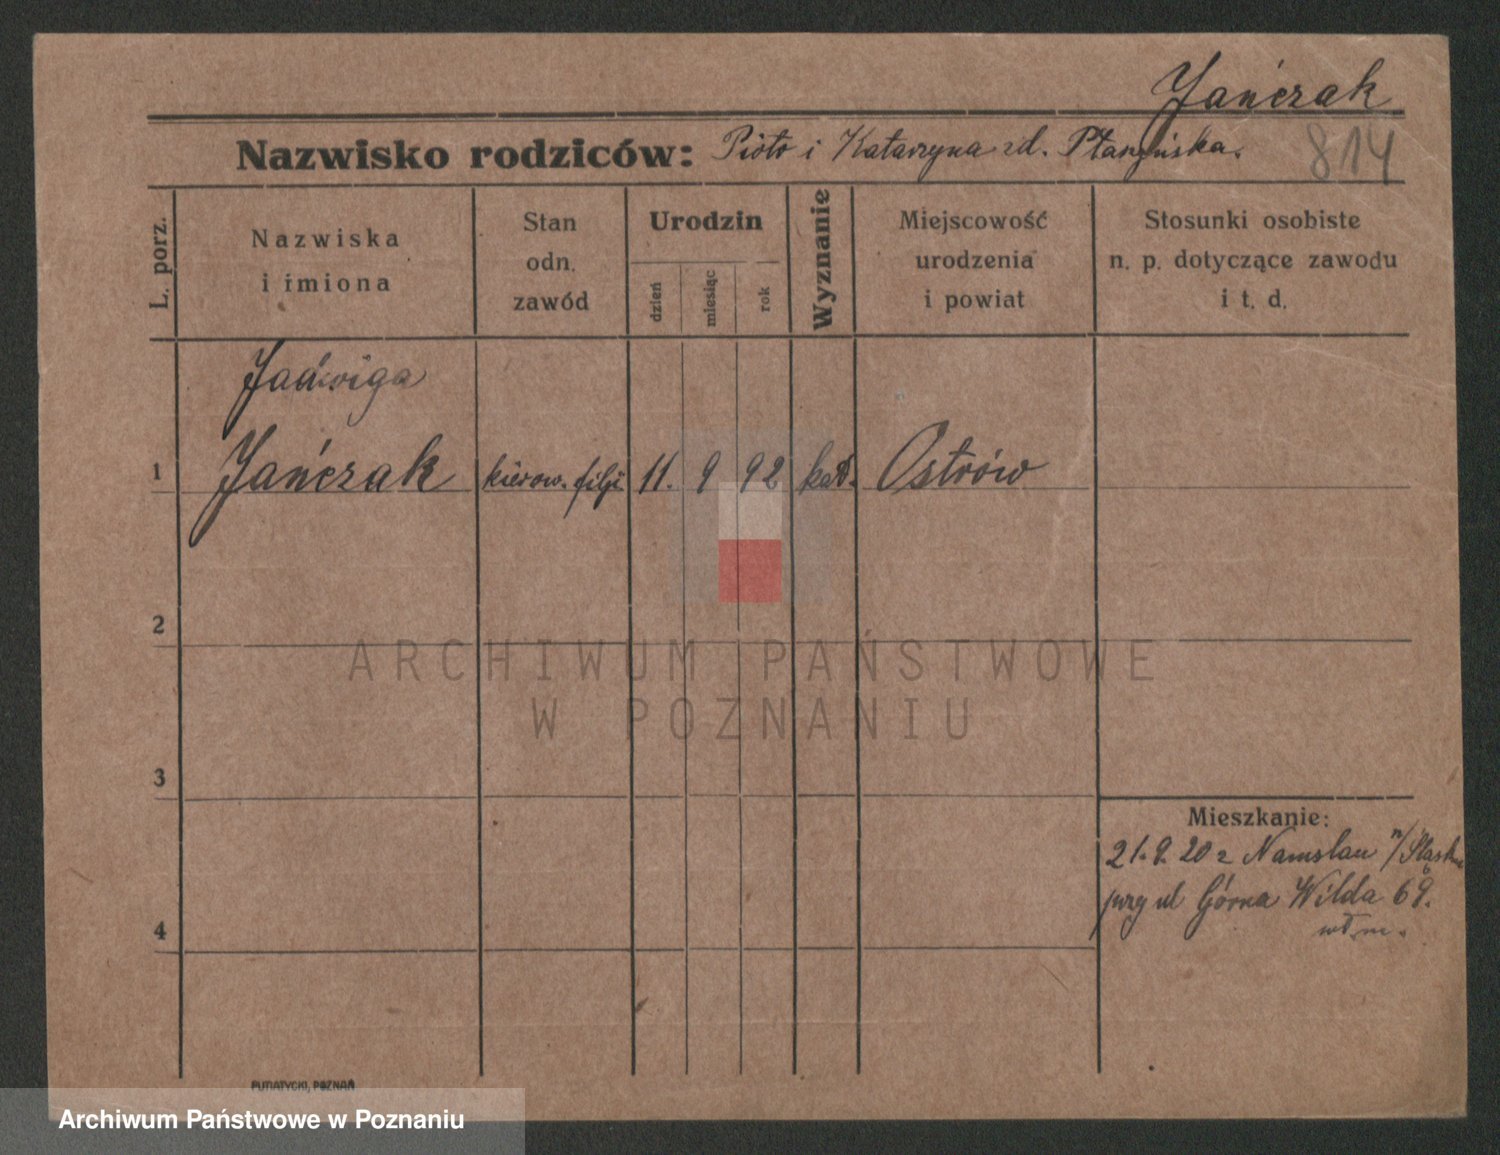 Jańczak
Nazwisko rodziców: Piotr i Katarzyna zd.
814
L. porz.
Nazwiska
i imiona
Stan
odn.
zawód
Urodzin
dzień
miesiąc
rok
Wyznanie
Miejscowość
urodzenia
i powiat
Stosunki osobiste
n. p. dotyczące zawodu
i t. d.
Jadwiga
1 Jańczak kierow. filji 11. 9 92 kat. Ostrów
2
ARCHIWUM PAŃSTWOWE
W POZNANIU
3
Mieszkanie:
21.9.20 z Namslau n/Śląsku
przy ul Górna Wilda 69.
4
wł. m.
PUTIATYCKI, POZNAŃ
Archiwum Państwowe w Poznaniu